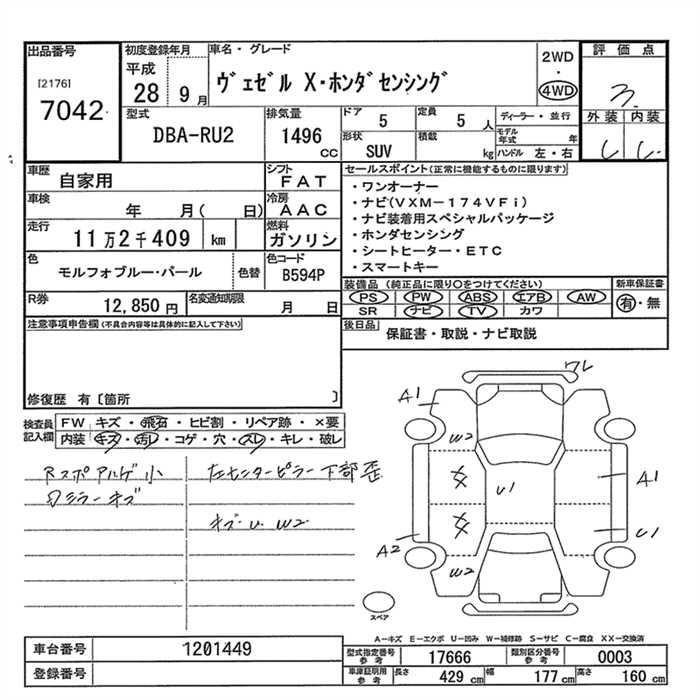 出品番号
[2176]
7042
初度登録年月
平成
28 9 月
車名・グレード
ヴェゼル X・ホンダセンシング
2WD
・
4WD
評価点
3
外装 内装
型式
DBA-RU2
排気量
1496
cc
ドア
5
定員
5 人
ディーラー・並行
形状
SUV
積載
kg
モデル年式 年
ハンドル 左・右
車歴
自家用
シフト
FAT
車検
年 月( 日)
冷房
AAC
走行
11万2千409 km
燃料
ガソリン
色
モルフォブルー・パール
色替
色コード
B594P
R券
12,850 円
名変通知期限
月 日
セールスポイント(正常に機能するものに限ります)
・ワンオーナー
・ナビ(VXM-174VFi)
・ナビ装着用スペシャルパッケージ
・ホンダセンシング
・シートヒーター・ETC
・スマートキー
装備品 (純正品に限り○をつけてください)
PS PW ABS エアB AW
SR ナビ TV カワ
新車保証書
有・無
後日品
保証書・取説・ナビ取説
注意事項申告欄(不具合内容等は具体的に記入して下さい)
修復歴 有〔箇所 〕
検査員
記入欄
FW キズ・飛石・ヒビ割・リペア跡・×要
内装 キズ・汚レ・コゲ・穴・スレ・キレ・破レ
RスポアルゲJ小
ミラーキズ
左センターピラー下部歪
キズ U W2
ワレ
A1
W2
U1
A1
U1
A2
W2
スペア
A―キズ E―エクボ U―凹み W―補修跡 S―サビ C―腐食 XX―交換済
車台番号
1201449
登録番号
型式指定番号
参考
17666
類別区分番号
参考
0003
車庫証明用
参考
長さ 429 cm
幅 177 cm
高さ 160 cm